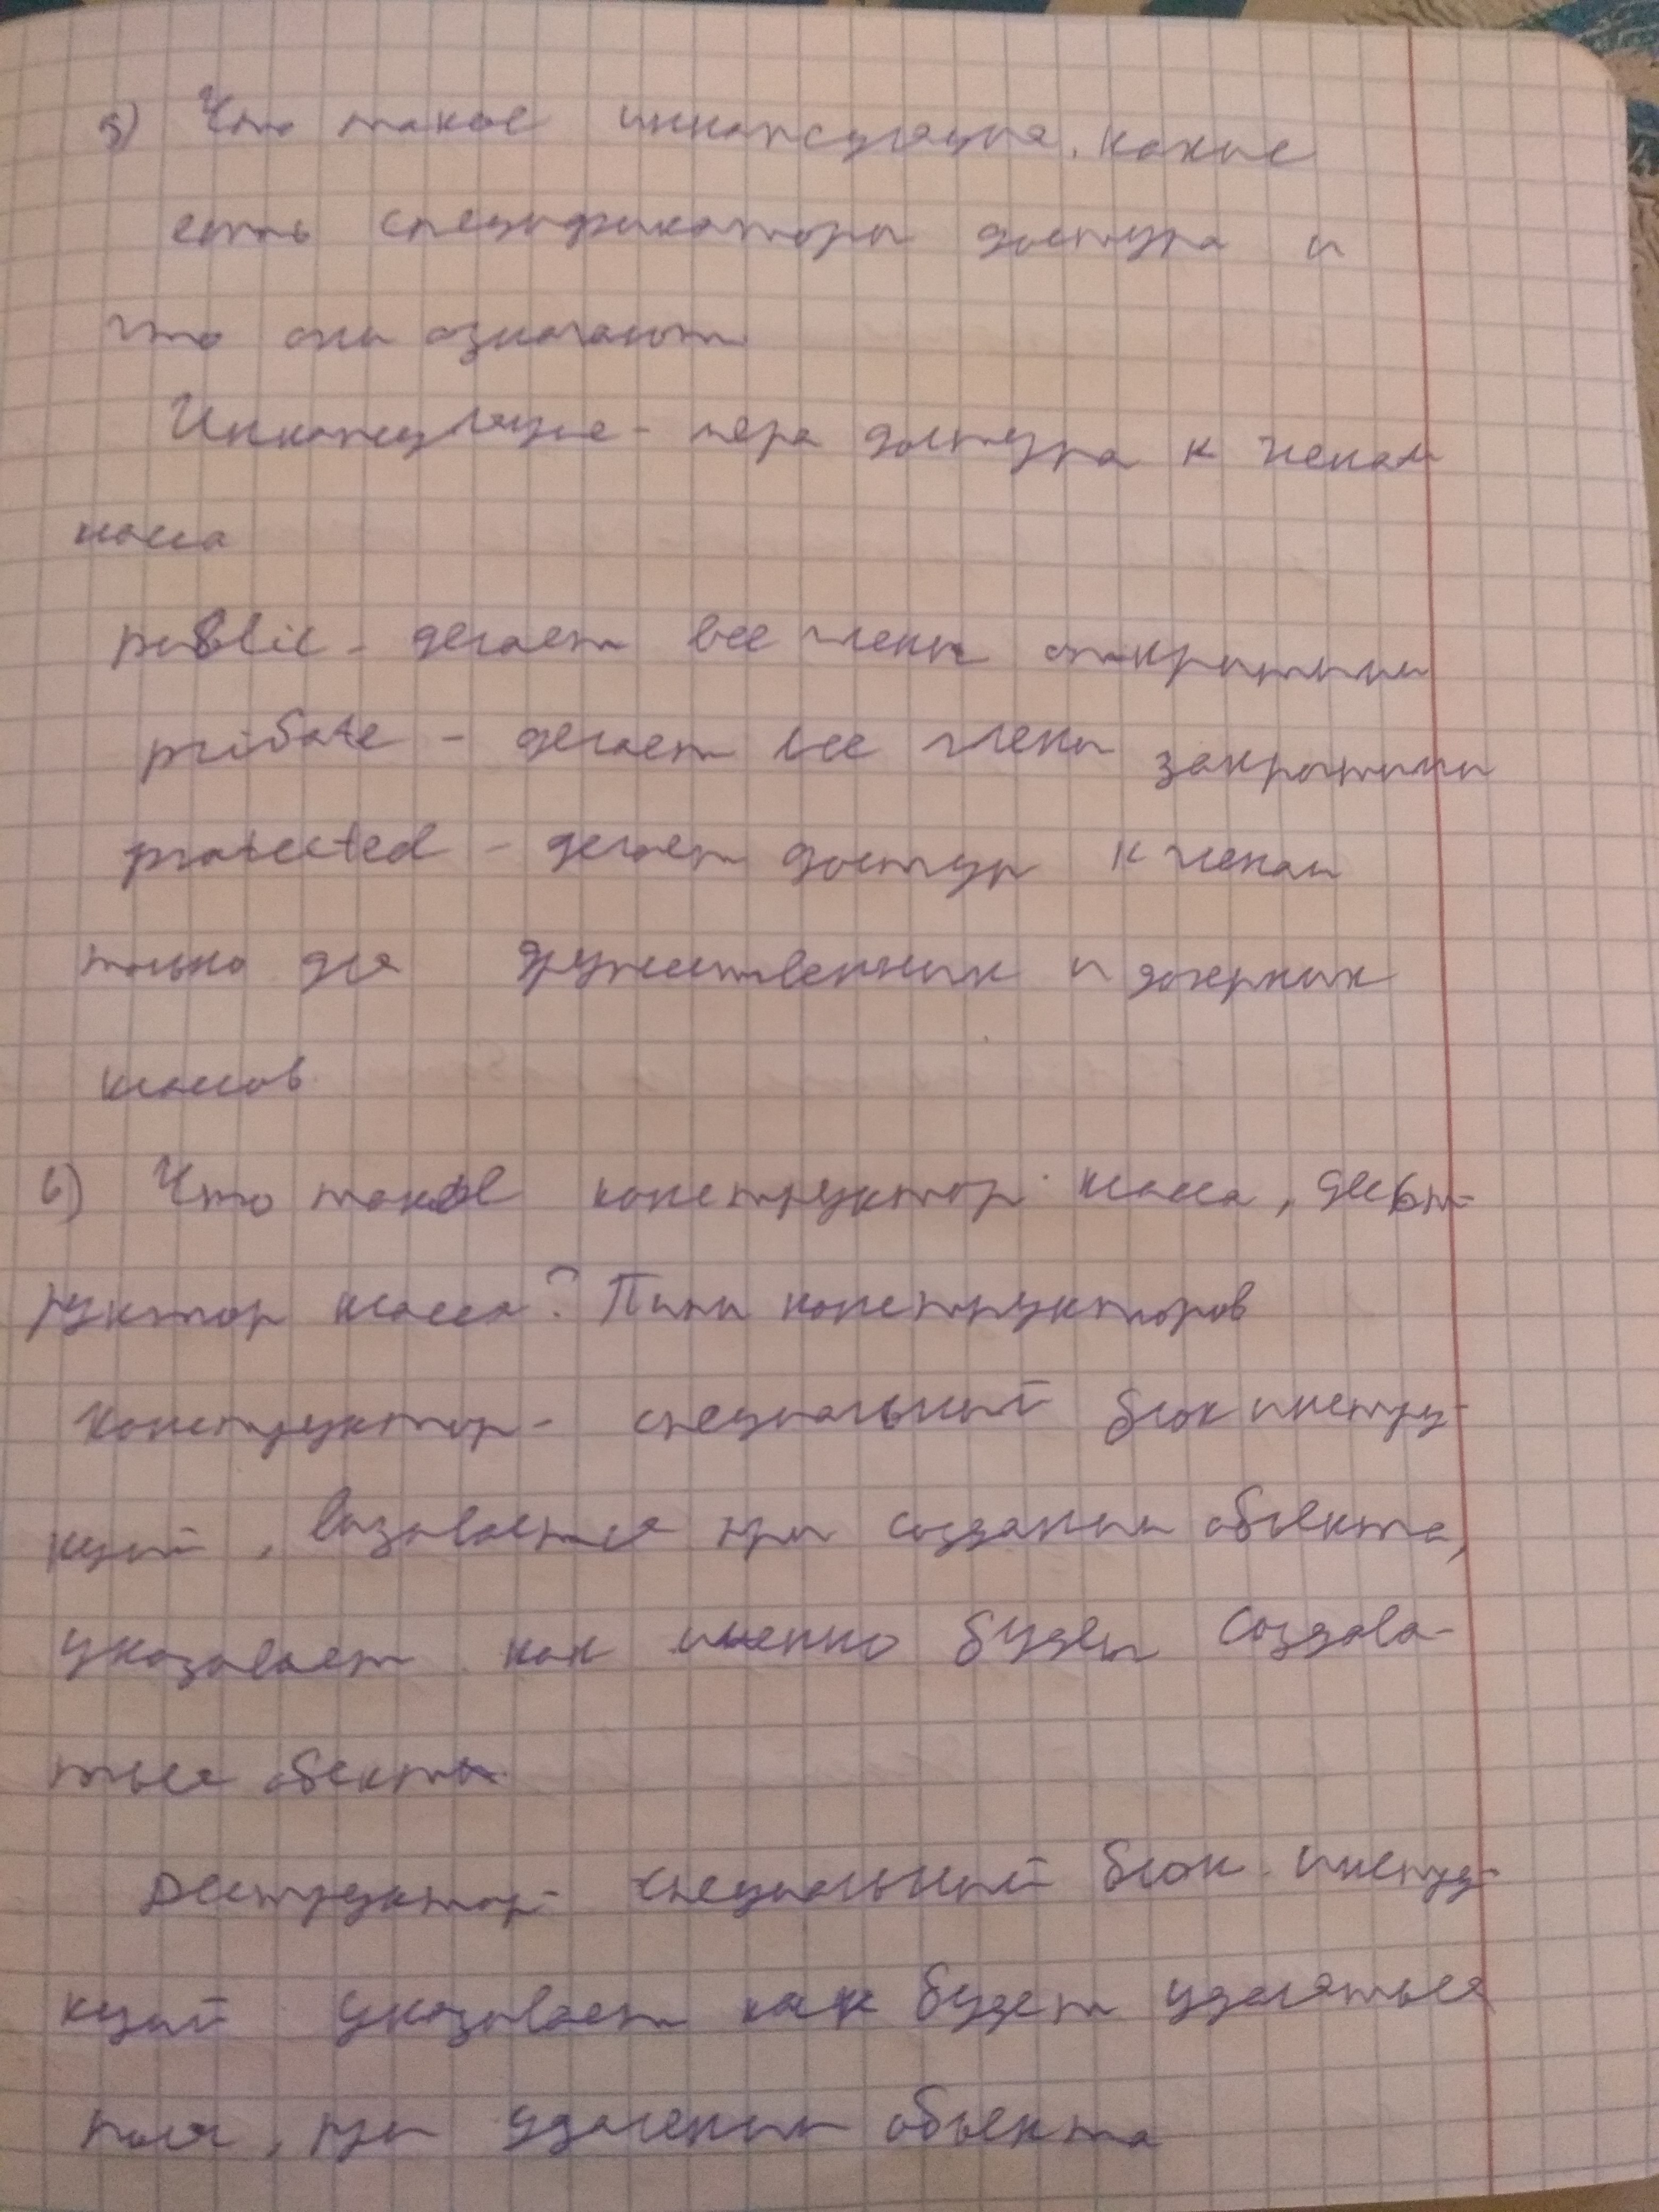 5) Что такое инкапсуляция, какие
есть спецификаторы доступа и
что они означают
Инкапсуляция - мера доступа к членам
класса
public - делает все члены открытыми
private - делает все члены закрытыми
protected - делает доступ к членам
только для дружественных и дочерних
классов
6) Что такое конструктор класса, дест-
руктор класса? Типы конструкторов
Конструктор - специальный блок инстру-
кций, вызывается при создании объекта,
указывает как именно будет создава-
ться объекты
Деструктор - специальный блок инстру-
кций указывает как будет удаляться
поля, при удалении объекта